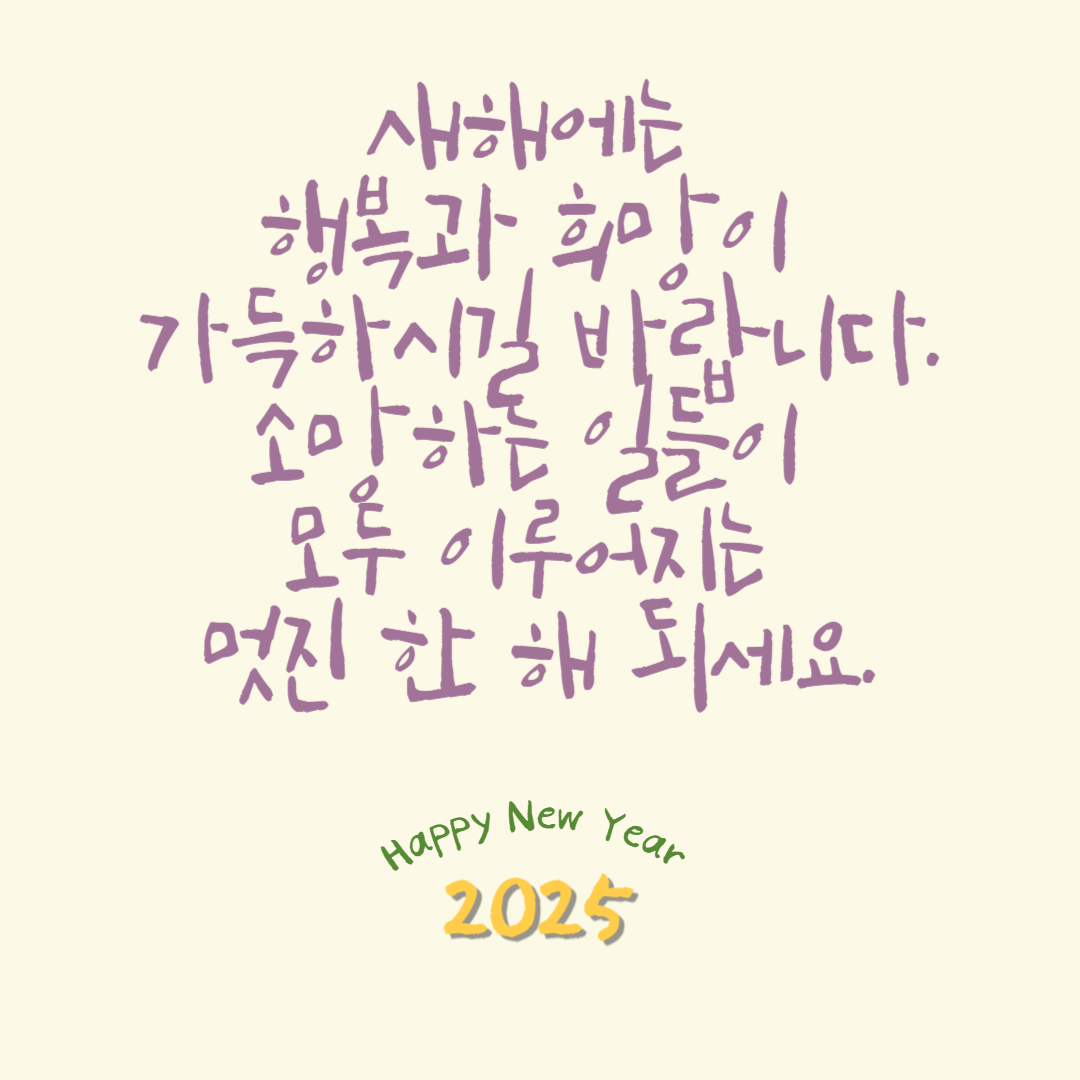 새해에는
행복과 희망이
가득하시길 바랍니다.
소망하는 일들이
모두 이루어지는
멋진 한 해 되세요.
Happy New Year
2025